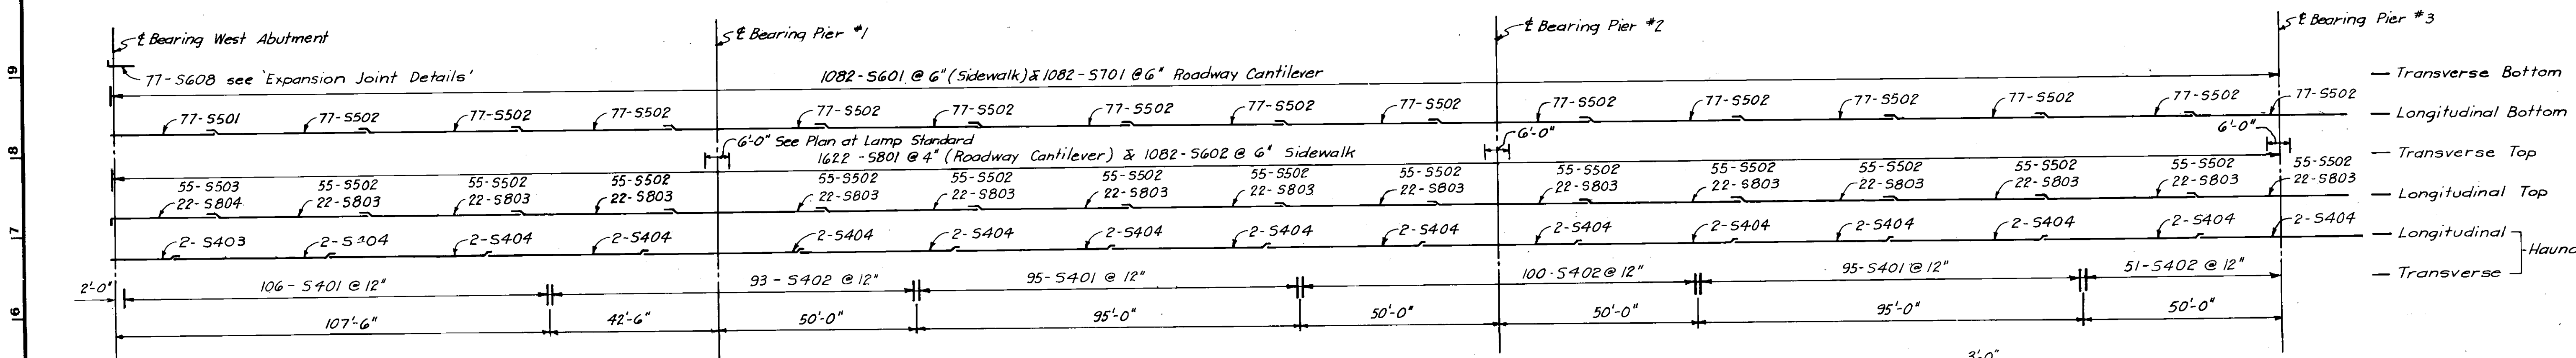 ℄ Bearing West Abutment
℄ Bearing Pier #1
℄ Bearing Pier #2
℄ Bearing Pier #3
77-S608 see 'Expansion Joint Details'
1082-S601 @ 6" (Sidewalk) & 1082-S701 @ 6" Roadway Cantilever
Transverse Bottom
77-S501 77-S502 77-S502 77-S502 77-S502 77-S502 77-S502 77-S502 77-S502 77-S502 77-S502 77-S502 77-S502 77-S502 77-S502
Longitudinal Bottom
6'-0" See Plan at Lamp Standard
6'-0"
6'-0"
1622-S801 @ 4" (Roadway Cantilever) & 1082-S602 @ 6" Sidewalk
Transverse Top
55-S503 55-S502 55-S502 55-S502 55-S502 55-S502 55-S502 55-S502 55-S502 55-S502 55-S502 55-S502 55-S502 55-S502 55-S502
22-S804 22-S803 22-S803 22-S803 22-S803 22-S803 22-S803 22-S803 22-S803 22-S803 22-S803 22-S803 22-S803 22-S803 22-S803
Longitudinal Top
2-S403 2-S404 2-S404 2-S404 2-S404 2-S404 2-S404 2-S404 2-S404 2-S404 2-S404 2-S404 2-S404 2-S404 2-S404
Longitudinal
Haunc
Transverse
2'-0"
106-S401 @ 12" 93-S402 @ 12" 95-S401 @ 12" 100-S402 @ 12" 95-S401 @ 12" 51-S402 @ 12"
107'-6" 42'-6" 50'-0" 95'-0" 50'-0" 50'-0" 95'-0" 50'-0"
3'-0"
19
18
17
16